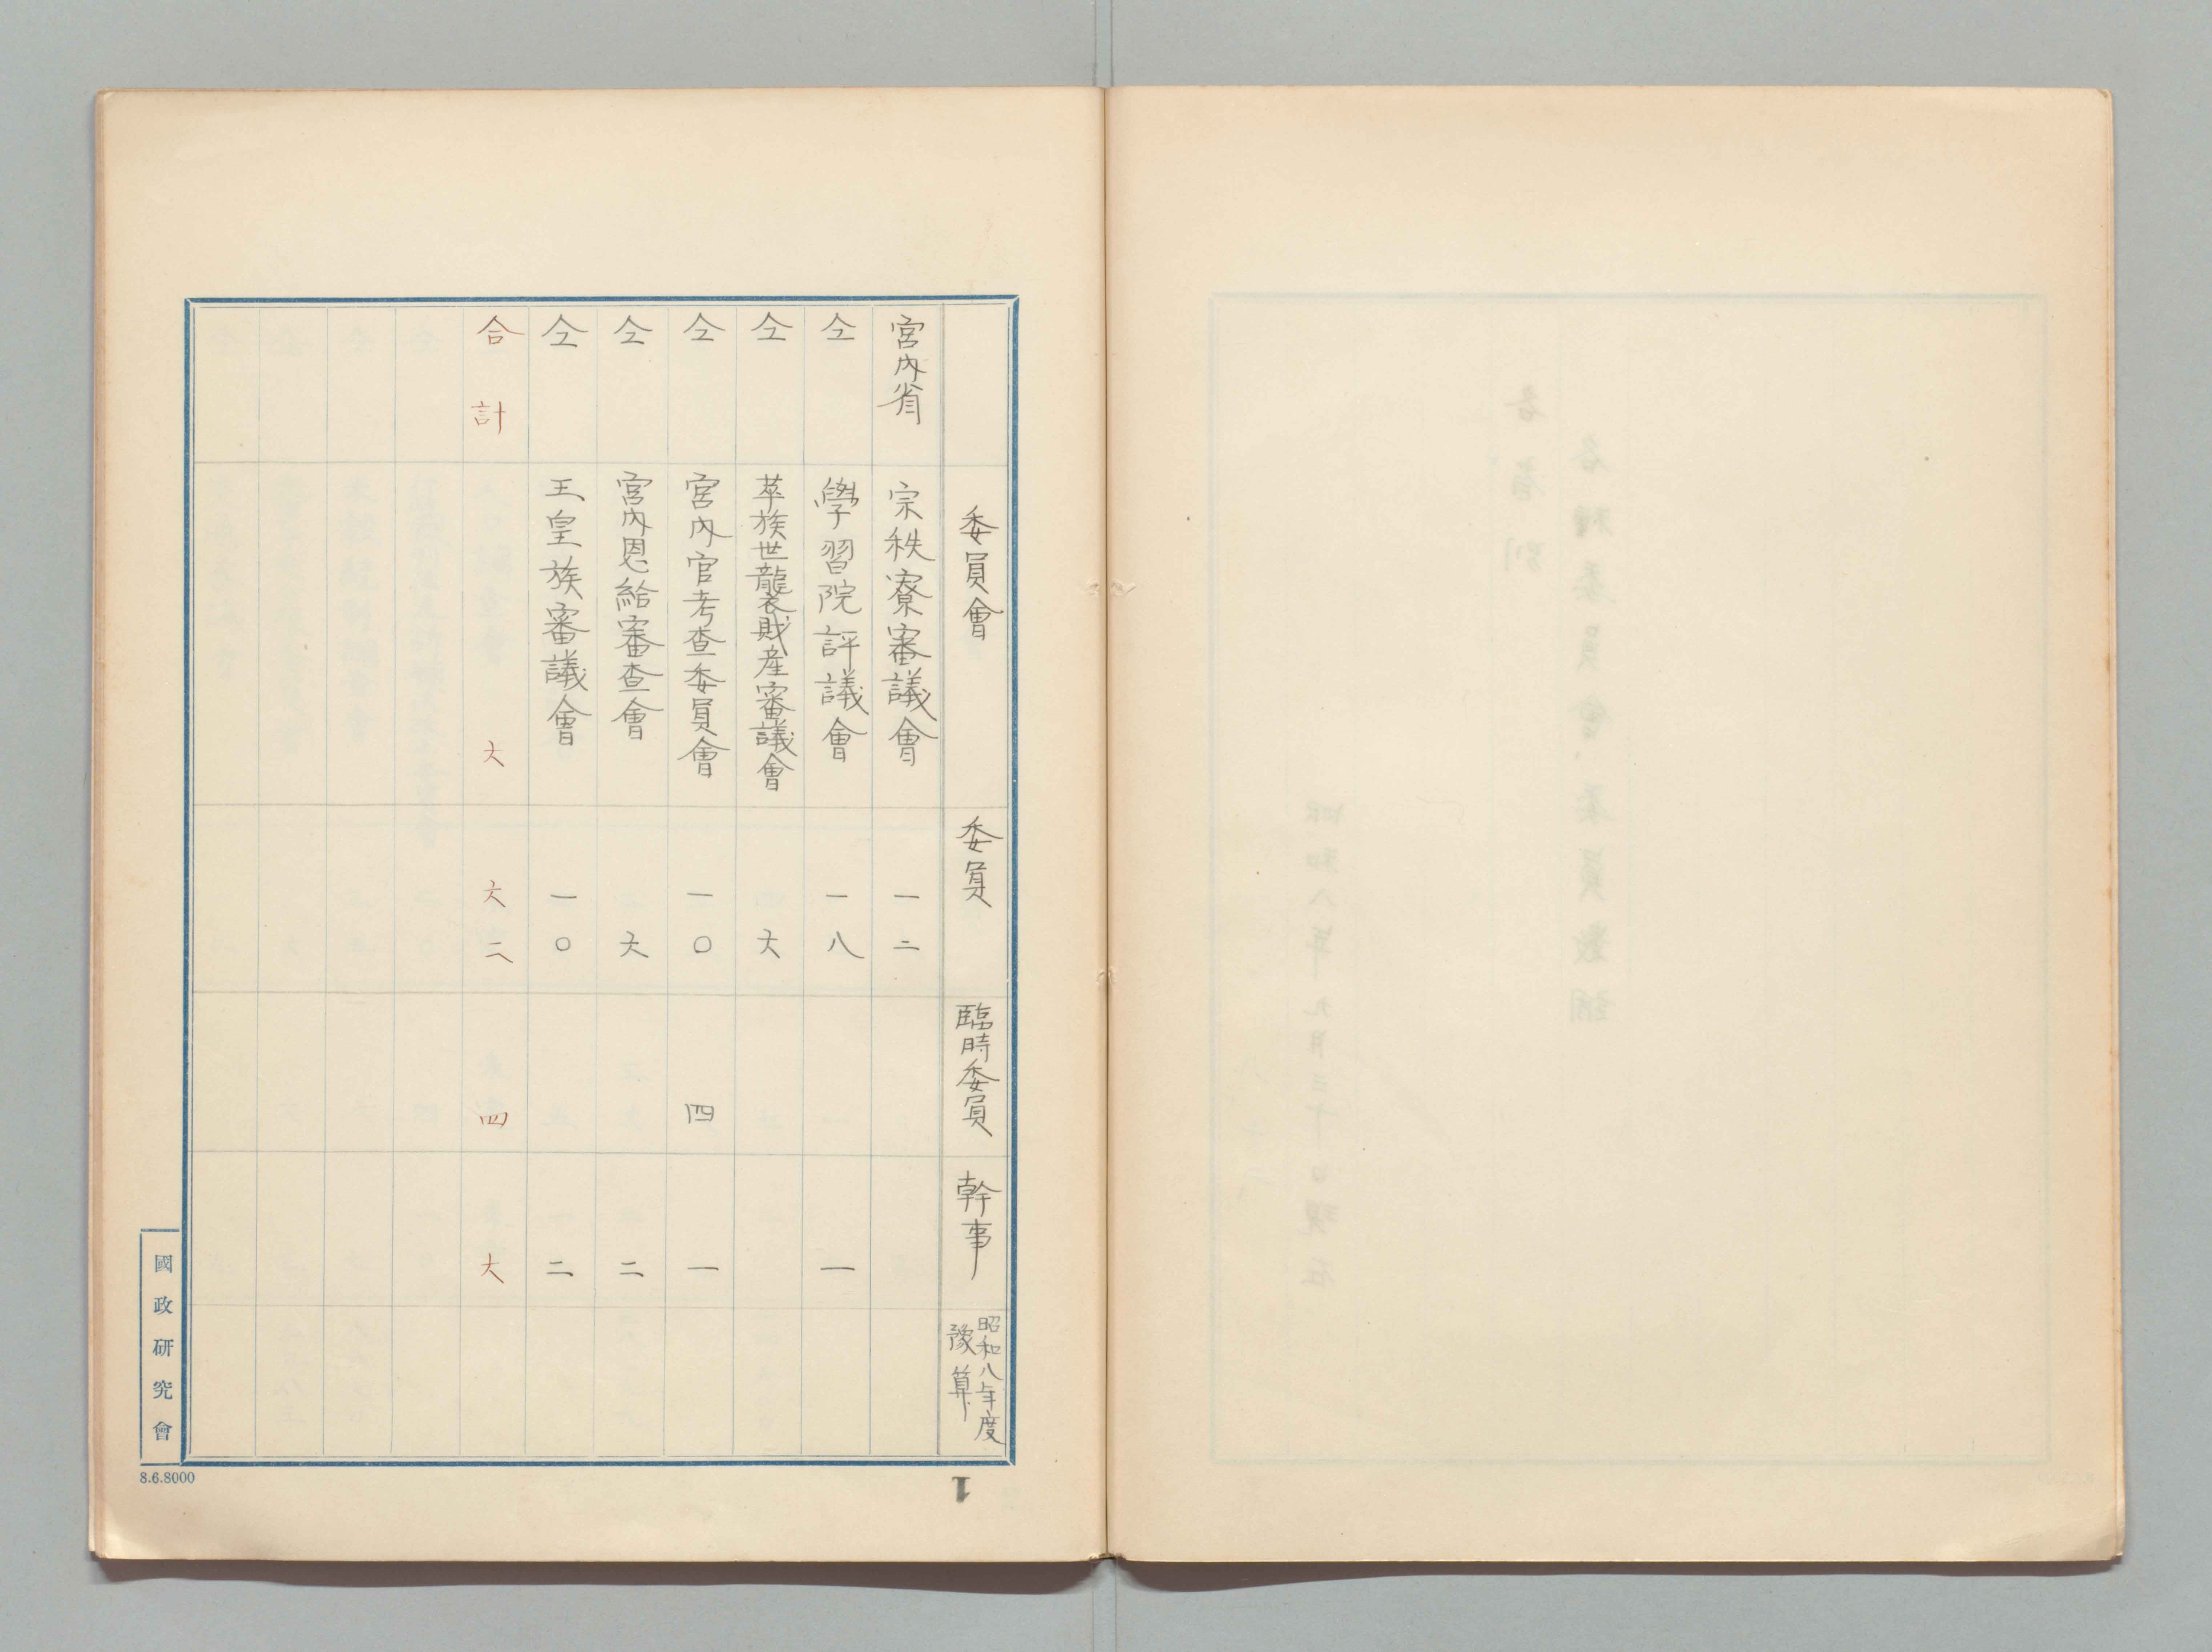 委員會 委員 臨時委員 幹事 昭和八年度豫算
宮内省 宗秩寮審議會 一二
仝 學習院評議會 一八 一
仝 華族世襲財産審議會 六
仝 宮内官考査委員會 一〇 四 一
仝 宮内恩給審査會 六 二
仝 王皇族審議會 一〇 二
合計 六 六二 四 六
國政研究會
8.6.8000
1